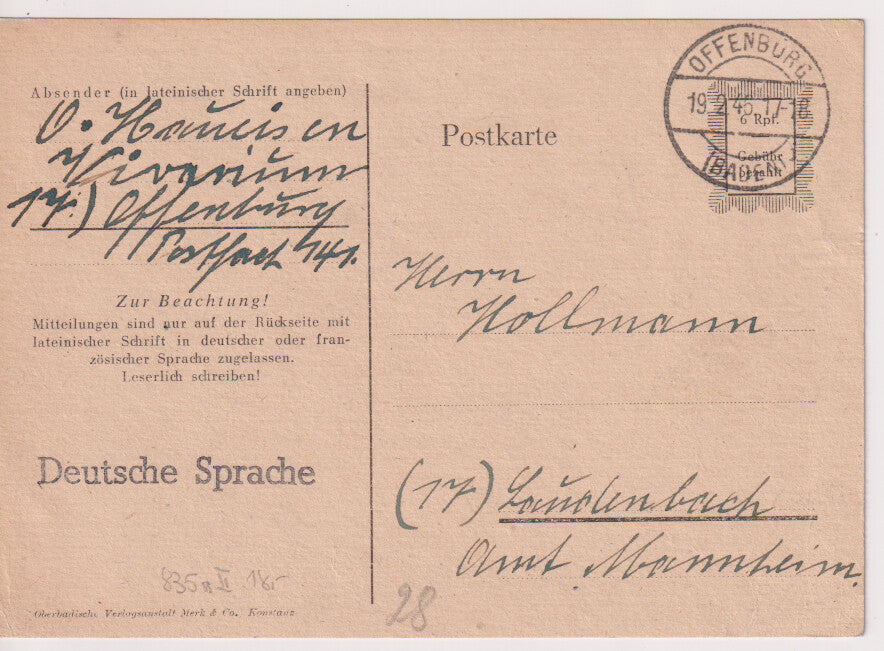 Absender (in lateinischer Schrift angeben)
O.
Vivarium
17.) Offenburg
Postfach 141.
Zur Beachtung!
Mitteilungen sind nur auf der Rückseite mit
lateinischer Schrift in deutscher oder fran-
zösischer Sprache zugelassen.
Leserlich schreiben!
Deutsche Sprache
Oberbadische Verlagsanstalt Merk & Co. Konstanz
Postkarte
OFFENBURG
19.2.46.17-18
(BADEN)
6 Rpf.
Gebühr
bezahlt
Herrn
Hollmann
(17) Laudenbach
Amt Mannheim.
28